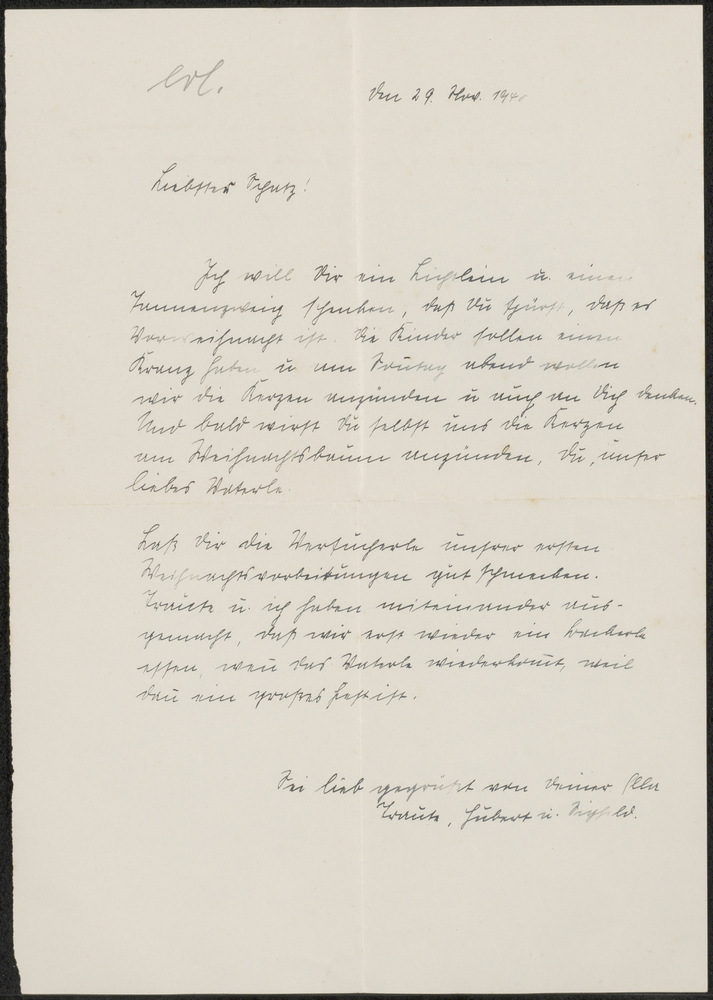 erl.
den 29. Nov. 194
Liebster Schatz!
Ich will Dir ein Lichtlein u. einen
Tannenzweig schenken, daß Du spürst, daß es
Vorweihnacht ist. Die Kinder sollen einen
Kranz haben u. am Sonntag abend wollen
wir die Kerzen anzünden u auch an Dich denken.
Und bald wirst Du selbst uns die Kerzen
am Weihnachtsbaum anzünden, Du, unser
liebes Vaterle.
Laß Dir die Versucherle unsrer ersten
Weihnachtsvorbereitungen gut schmecken.
Traute u. ich haben miteinander aus-
gemacht, daß wir erst wieder ein
essen, wenn das Vaterle wiederkommt, weil
dann ein großes Fest ist.
Sei lieb gegrüßt von Deiner Ella
Traute, Hubert u. Sigfrid.